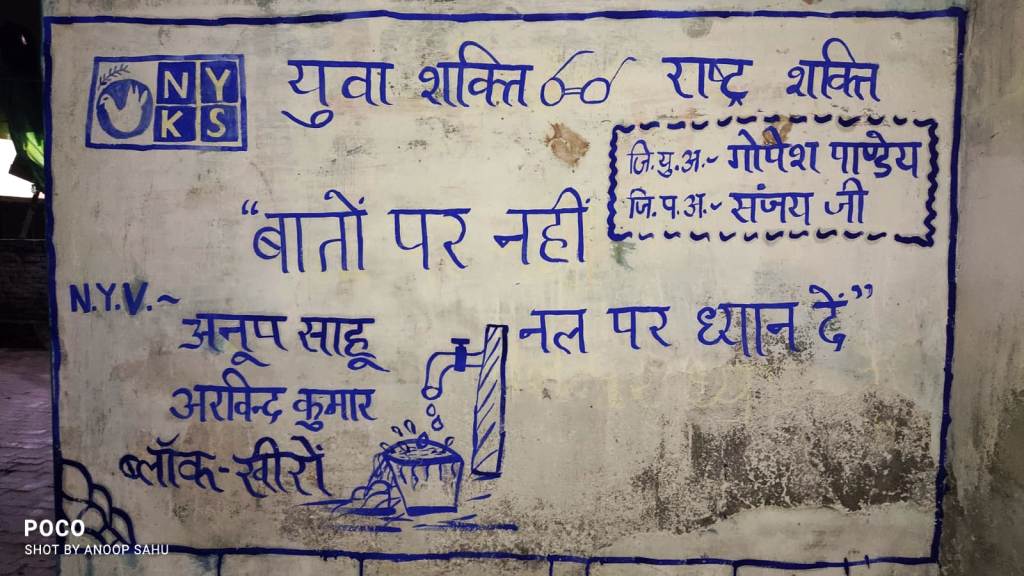 NY
KS
युवा शक्ति राष्ट्र शक्ति
जि.यु.अ.- गोपेश पाण्डेय
जि.प.अ.- संजय जी
“बातों पर नहीं
नल पर ध्यान दें”
N.Y.V.~
अनूप साहू
अरविन्द कुमार
ब्लॉक-खीरों
POCO
SHOT BY ANOOP SAHU